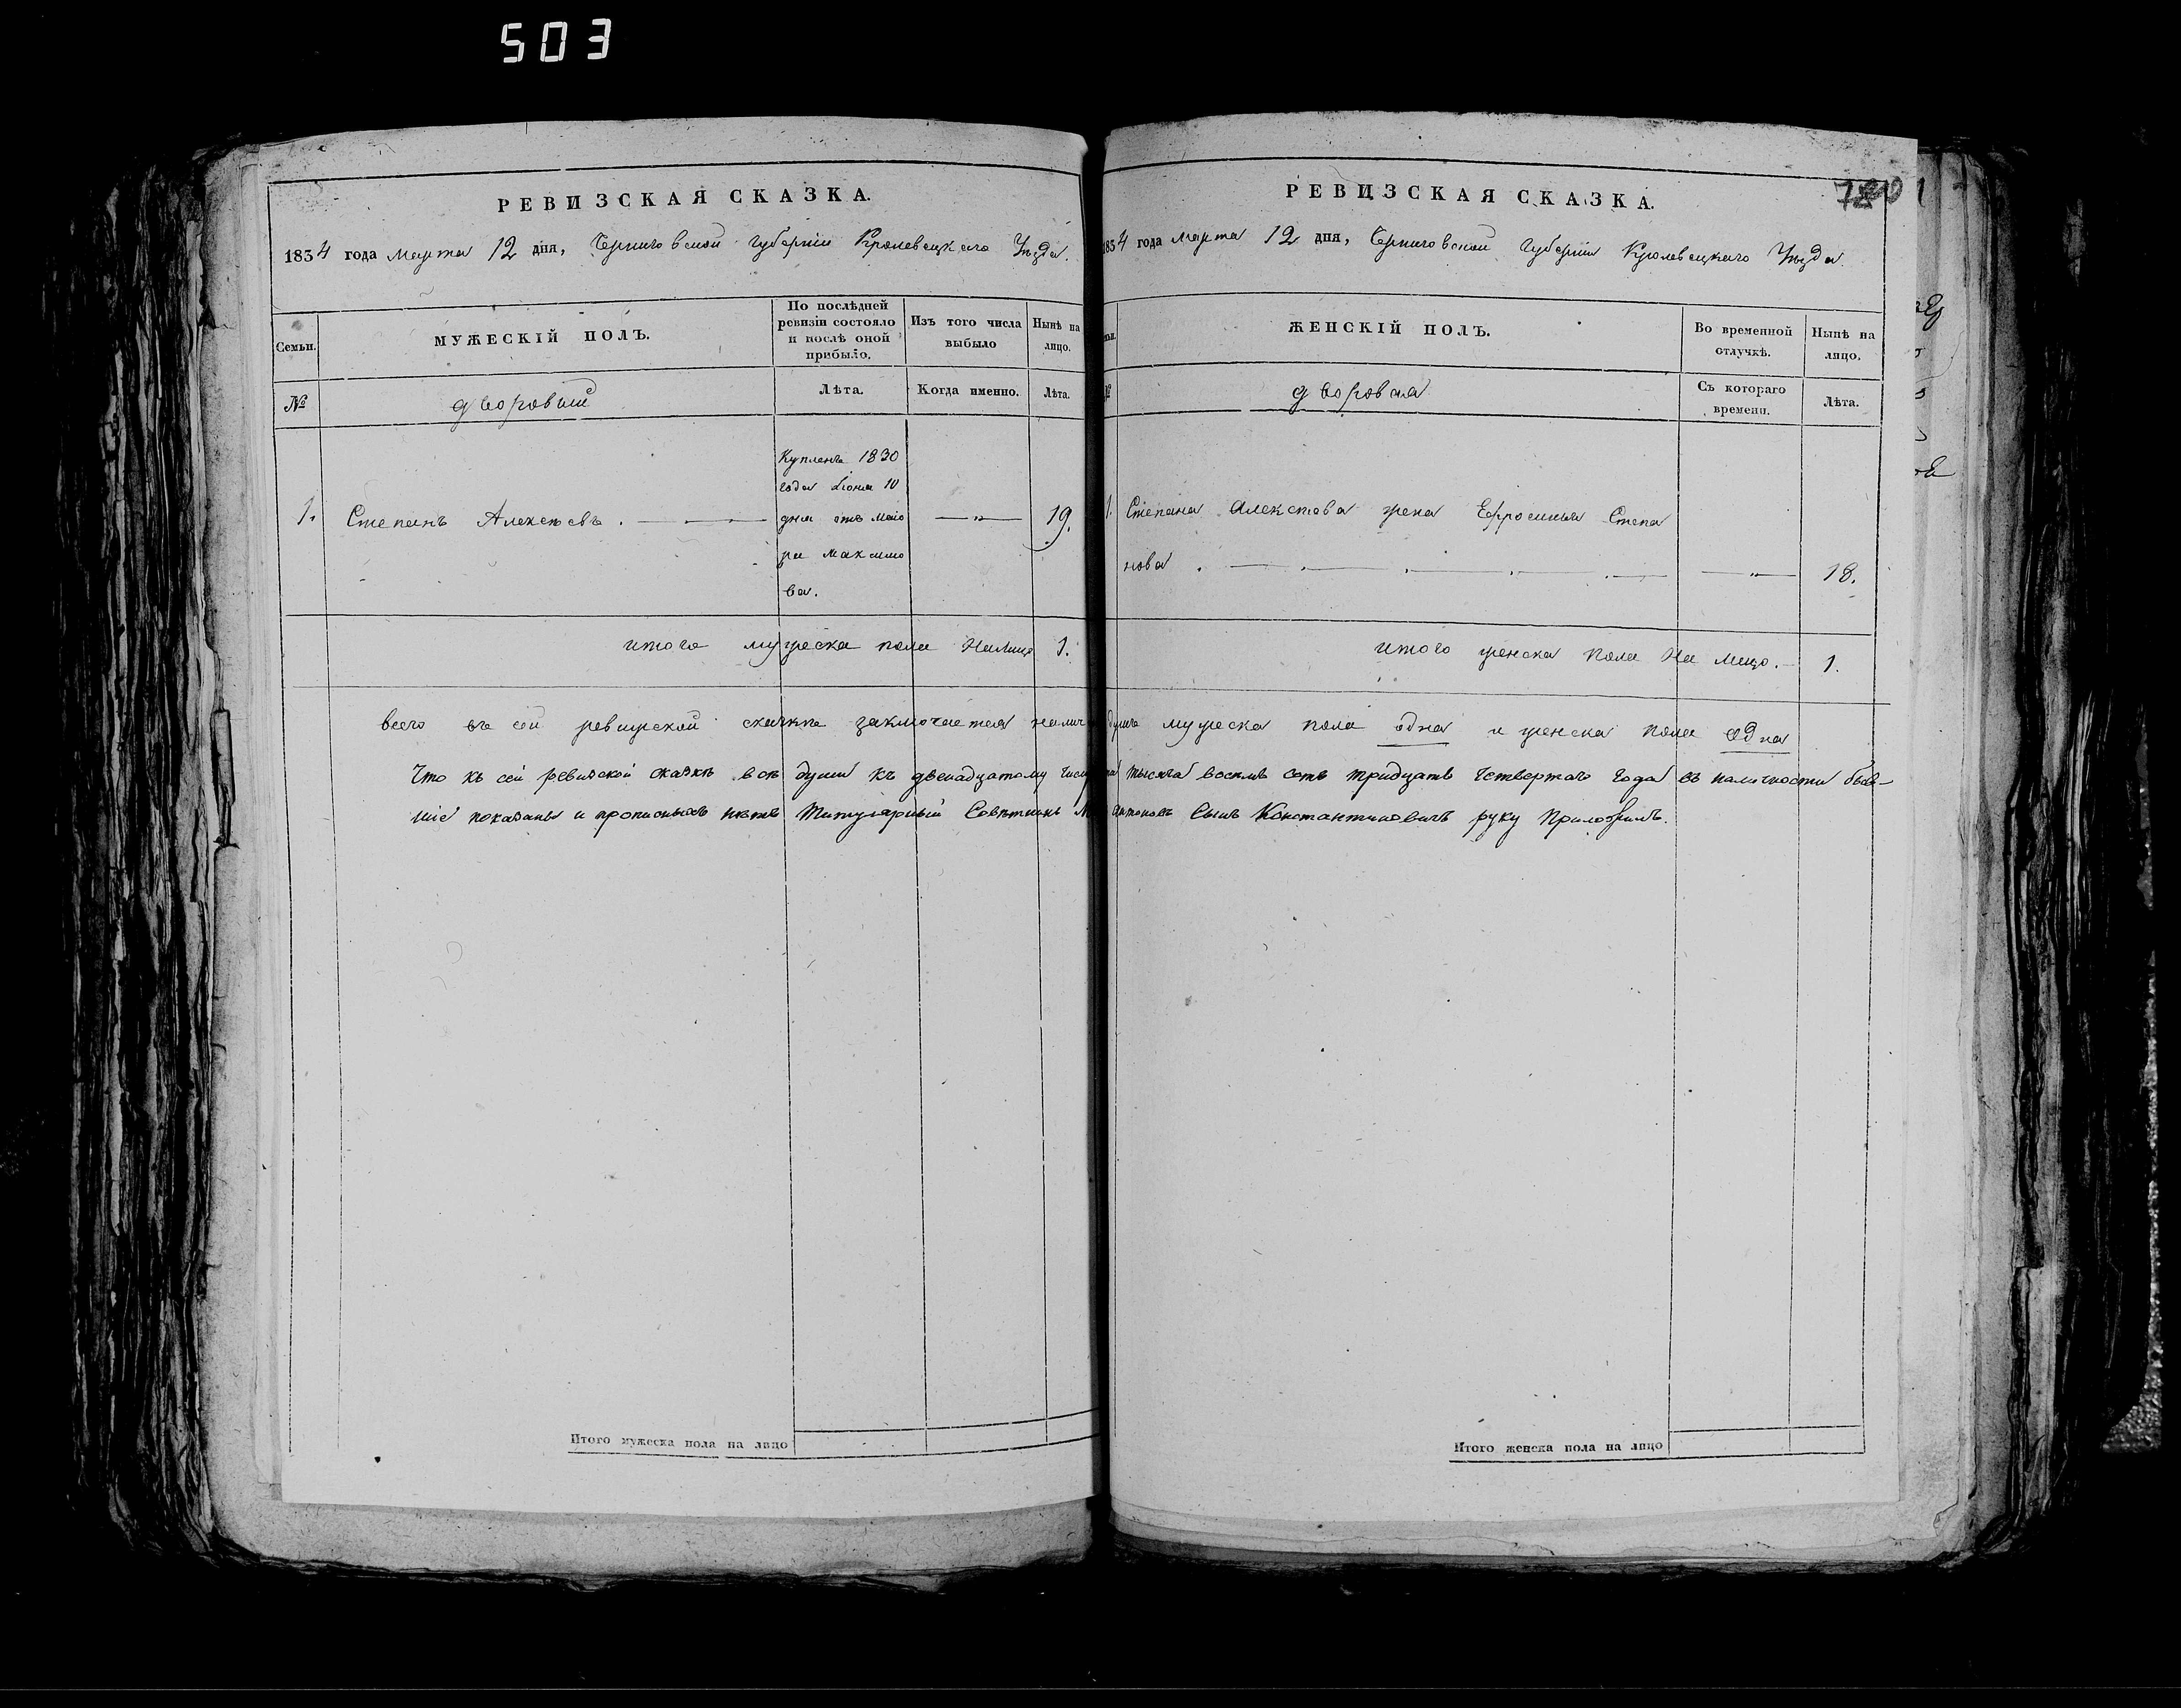 503
РЕВИЗСКАЯ СКАЗКА.
1834 года Марта 12 дня, Черниговской Губерніи Кролевецкаго Уѣзда.
Семьи.
МУЖЕСКІЙ ПОЛЪ.
По послѣдней
ревизіи состояло
и послѣ оной
прибыло.
Изъ того числа
выбыло
Нынѣ на
лицо.
№
дворовый
Лѣта.
Когда именно.
Лѣта.
1. Степанъ Алексѣевъ.
Купленъ 1830
года Іюня 10
дня отъ Маіо
ра Максимо
ва.
19.
итого мужеска пола Налицо 1.
РЕВИЗСКАЯ СКАЗКА.
1834 года Марта 12 дня, Черниговской Губерніи Кролевецкаго Уѣзда.
ЖЕНСКІЙ ПОЛЪ.
Во временной
отлучкѣ.
Нынѣ на
лицо.
№
дворовая
Съ котораго
времени.
Лѣта.
1. Степана Алексѣева жена Ефросинья Степа
нова. 18.
итого женска пола На лицо. 1.
всего въ сей ревизской сказкѣ заключается душъ мужеска пола одна и женска пола одна
Что къ сей ревизской сказкѣ всѣ души къ двенадцатому тысяча восемь сотъ тридцать четвертаго года въ наличности быв-
шіе показаны и прописныхъ нѣтъ Титулярный Совѣтникъ Антоновъ Сынъ Константиновичъ руку Приложилъ.
Итого мужеска пола на лицо
Итого женска пола на лицо